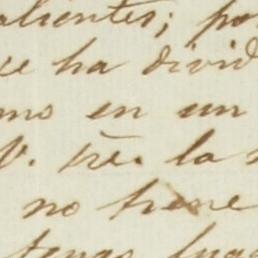 alientes; po
ce ha divid
mo en un
V. Tre. la
no tiene
tengo luga